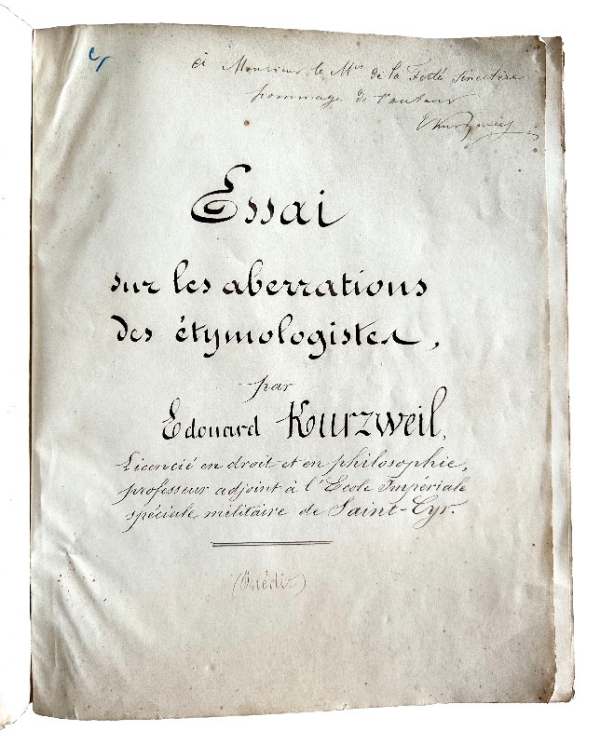 à Monsieur le Mis de la Ferté Senectère
hommage de l'auteur
EKurzweil
Essai
sur les aberrations
des étymologistes,
par
Edouard Kurzweil,
Licencié en droit et en philosophie,
professeur adjoint à l'Ecole Impériale
spéciale militaire de Saint-Cyr.
(Inédit)